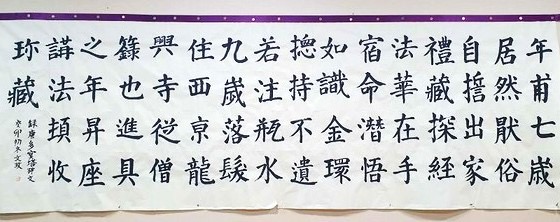 年甫七歲
居然猒俗
自誓出家
禮藏探經
法華在手
宿命潛悟
如識金環
揔持不遺
若注瓶水
九歲落髮
住西亰龍
興寺從僧
籙也進具
之年昇座
講法頓收
珎藏
録唐多寶塔碑文
癸卯初冬文